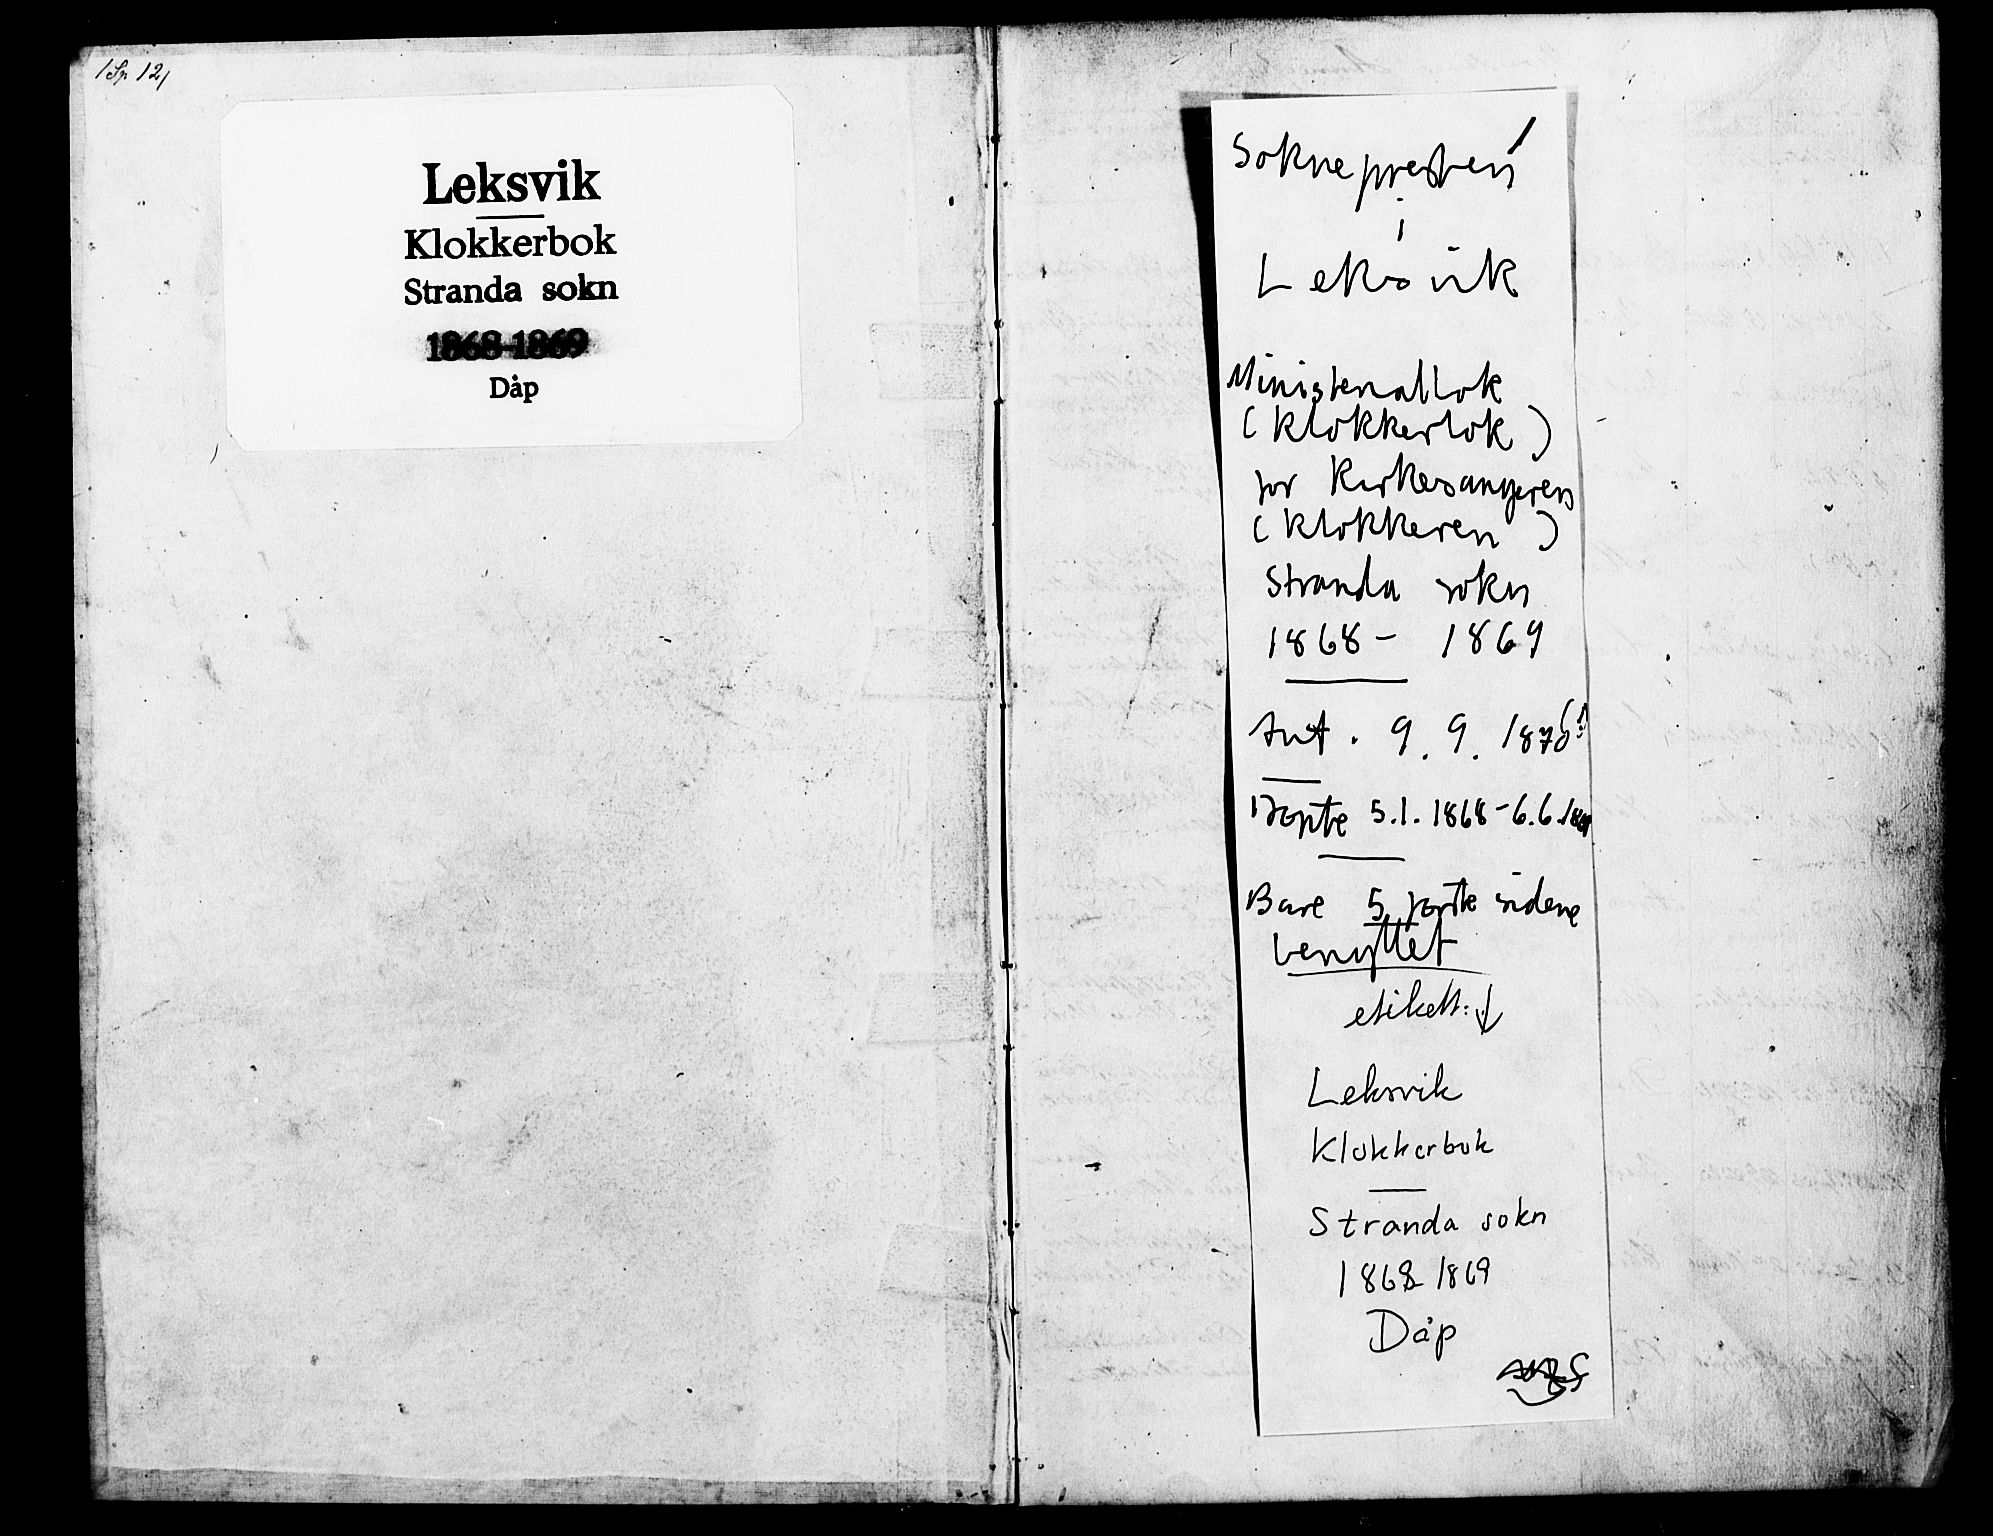 Leksvik
Klokkerbok
Stranda sokn
1868-1869
Dåp
Soknepresten
i
Leksvik
Ministerialbok
(Klokkerbok)
for Kirkesangeren
(Klokkeren)
Stranda sokn
1868- 1869
Aut. 9. 9. 187
Døpte 5.1.1868-6.6.1869
Bare 5 første sidene
benyttet
etikett: ↓
Leksvik
Klokkerbok
Stranda sokn
1868 1869
Dåp